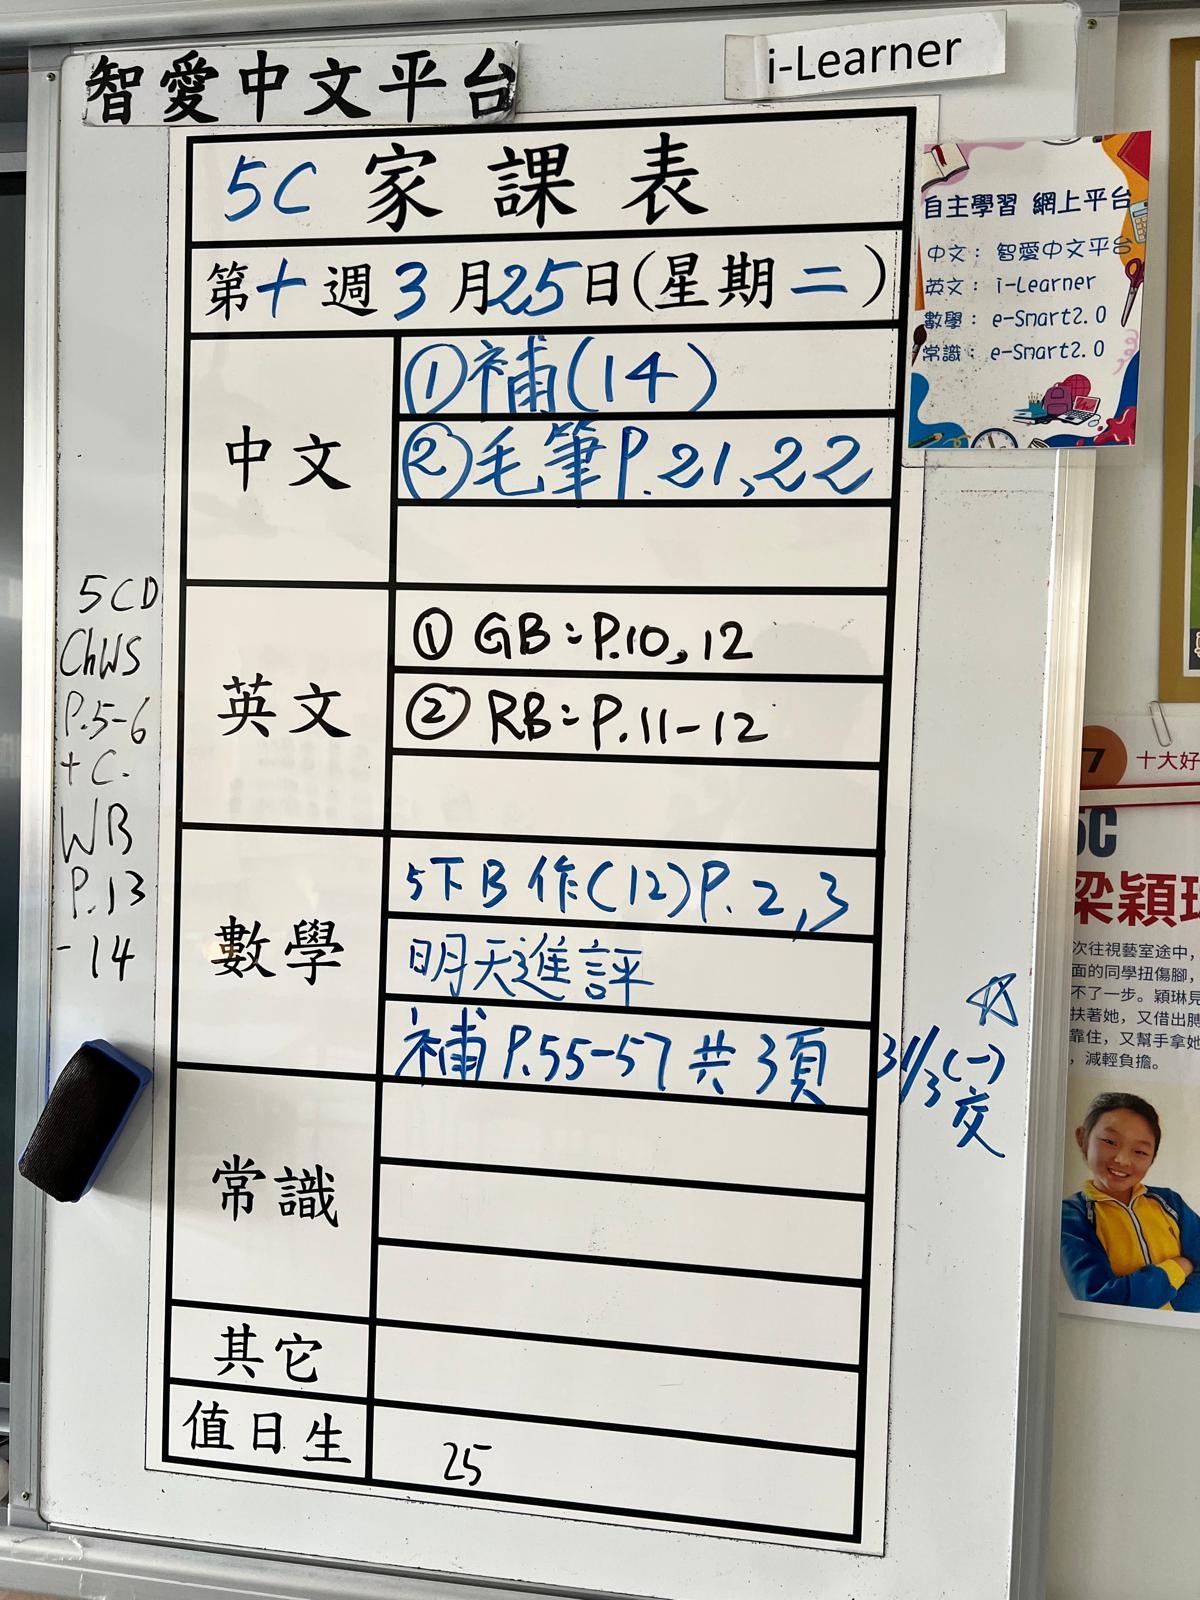 智愛中文平台
i-Learner
5C 家課表
第十週3月25日(星期二)
中文
①補(14)
②毛筆P.21,22
英文
① GB:P.10,12
② RB:P.11-12
數學
5下B 作(12)P.2,3
明天進評
補 P.55-57 共3頁 31/3(一)
交
常識
其它
值日生
25
5CD
ChWS
P.5-6
+ C.
WB
P.13
- 14
自主學習 網上平台
中文: 智愛中文平台
英文: i-Learner
數學: e-Smart2.0
常識: e-Smart2.0
7 十大好
5C
梁穎琳
次往視藝室途中,
面的同學扭傷腳,
不了一步。穎琳見
扶著她,又借出膊
靠住,又幫手拿她
,減輕負擔。